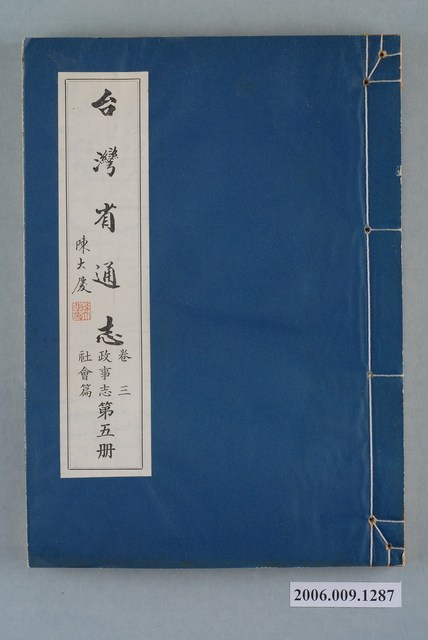 台灣省通志
陳大慶
卷三
政事志
社會篇
第五册
2006.009.1287